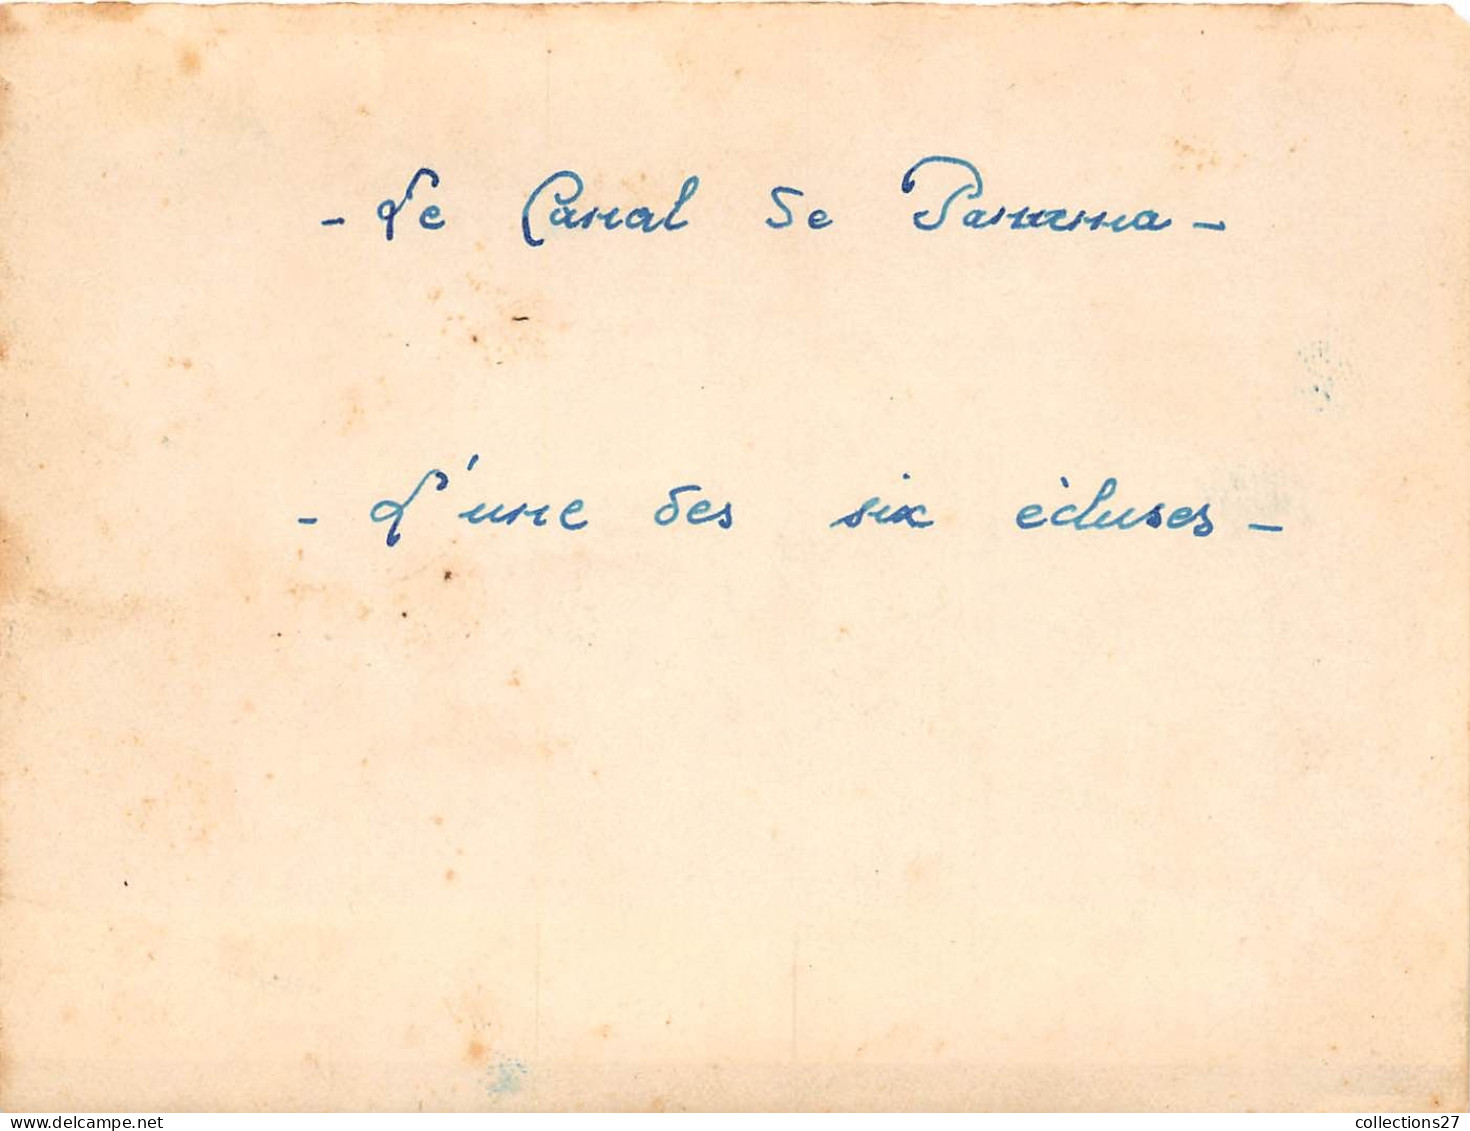 - Le Canal de Panama -
- L'une des six écluses -
delcampe.net
collections27